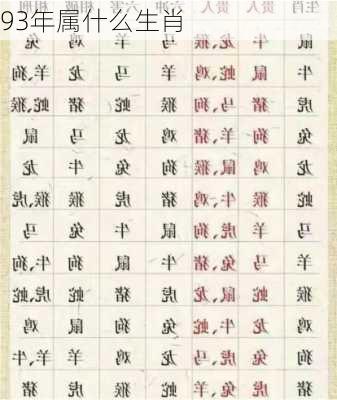 93年属什么生肖
生肖 贵人 贵人 六冲 六害 相破 相刑
鼠 牛 龙、猴 马 羊 鸡 兔
牛 鼠 蛇、鸡 羊 马 龙 狗、羊
虎 猪 马、狗 猴 蛇 猪 蛇、猴
兔 狗 羊、猪 鸡 龙 马 鼠
龙 鸡 鼠、猴 狗 兔 牛 龙
蛇 猴 牛、鸡 猪 虎 猴 虎、猴
马 羊 虎、狗 鼠 牛 兔 马
羊 马 兔、猪 牛 鼠 狗 狗、牛
猴 蛇 鼠、龙 虎 猪 蛇 蛇、虎
鸡 龙 牛、蛇 兔 狗 鼠 鸡
狗 兔 虎、马 龙 鸡 羊 牛、羊
猪 虎 兔、羊 蛇 猴 虎 猪